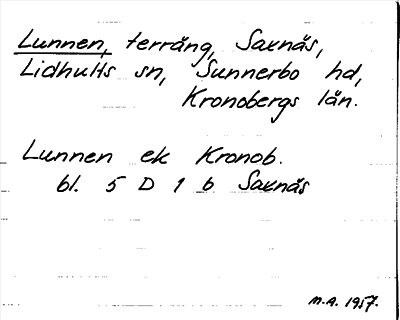 Lunnen, terräng, Saxnäs,
Lidhults sn, Sunnerbo hd,
Kronobergs län.
Lunnen ek Kronob.
bl. 5 D 1 b Saxnäs
M.A. 1957.